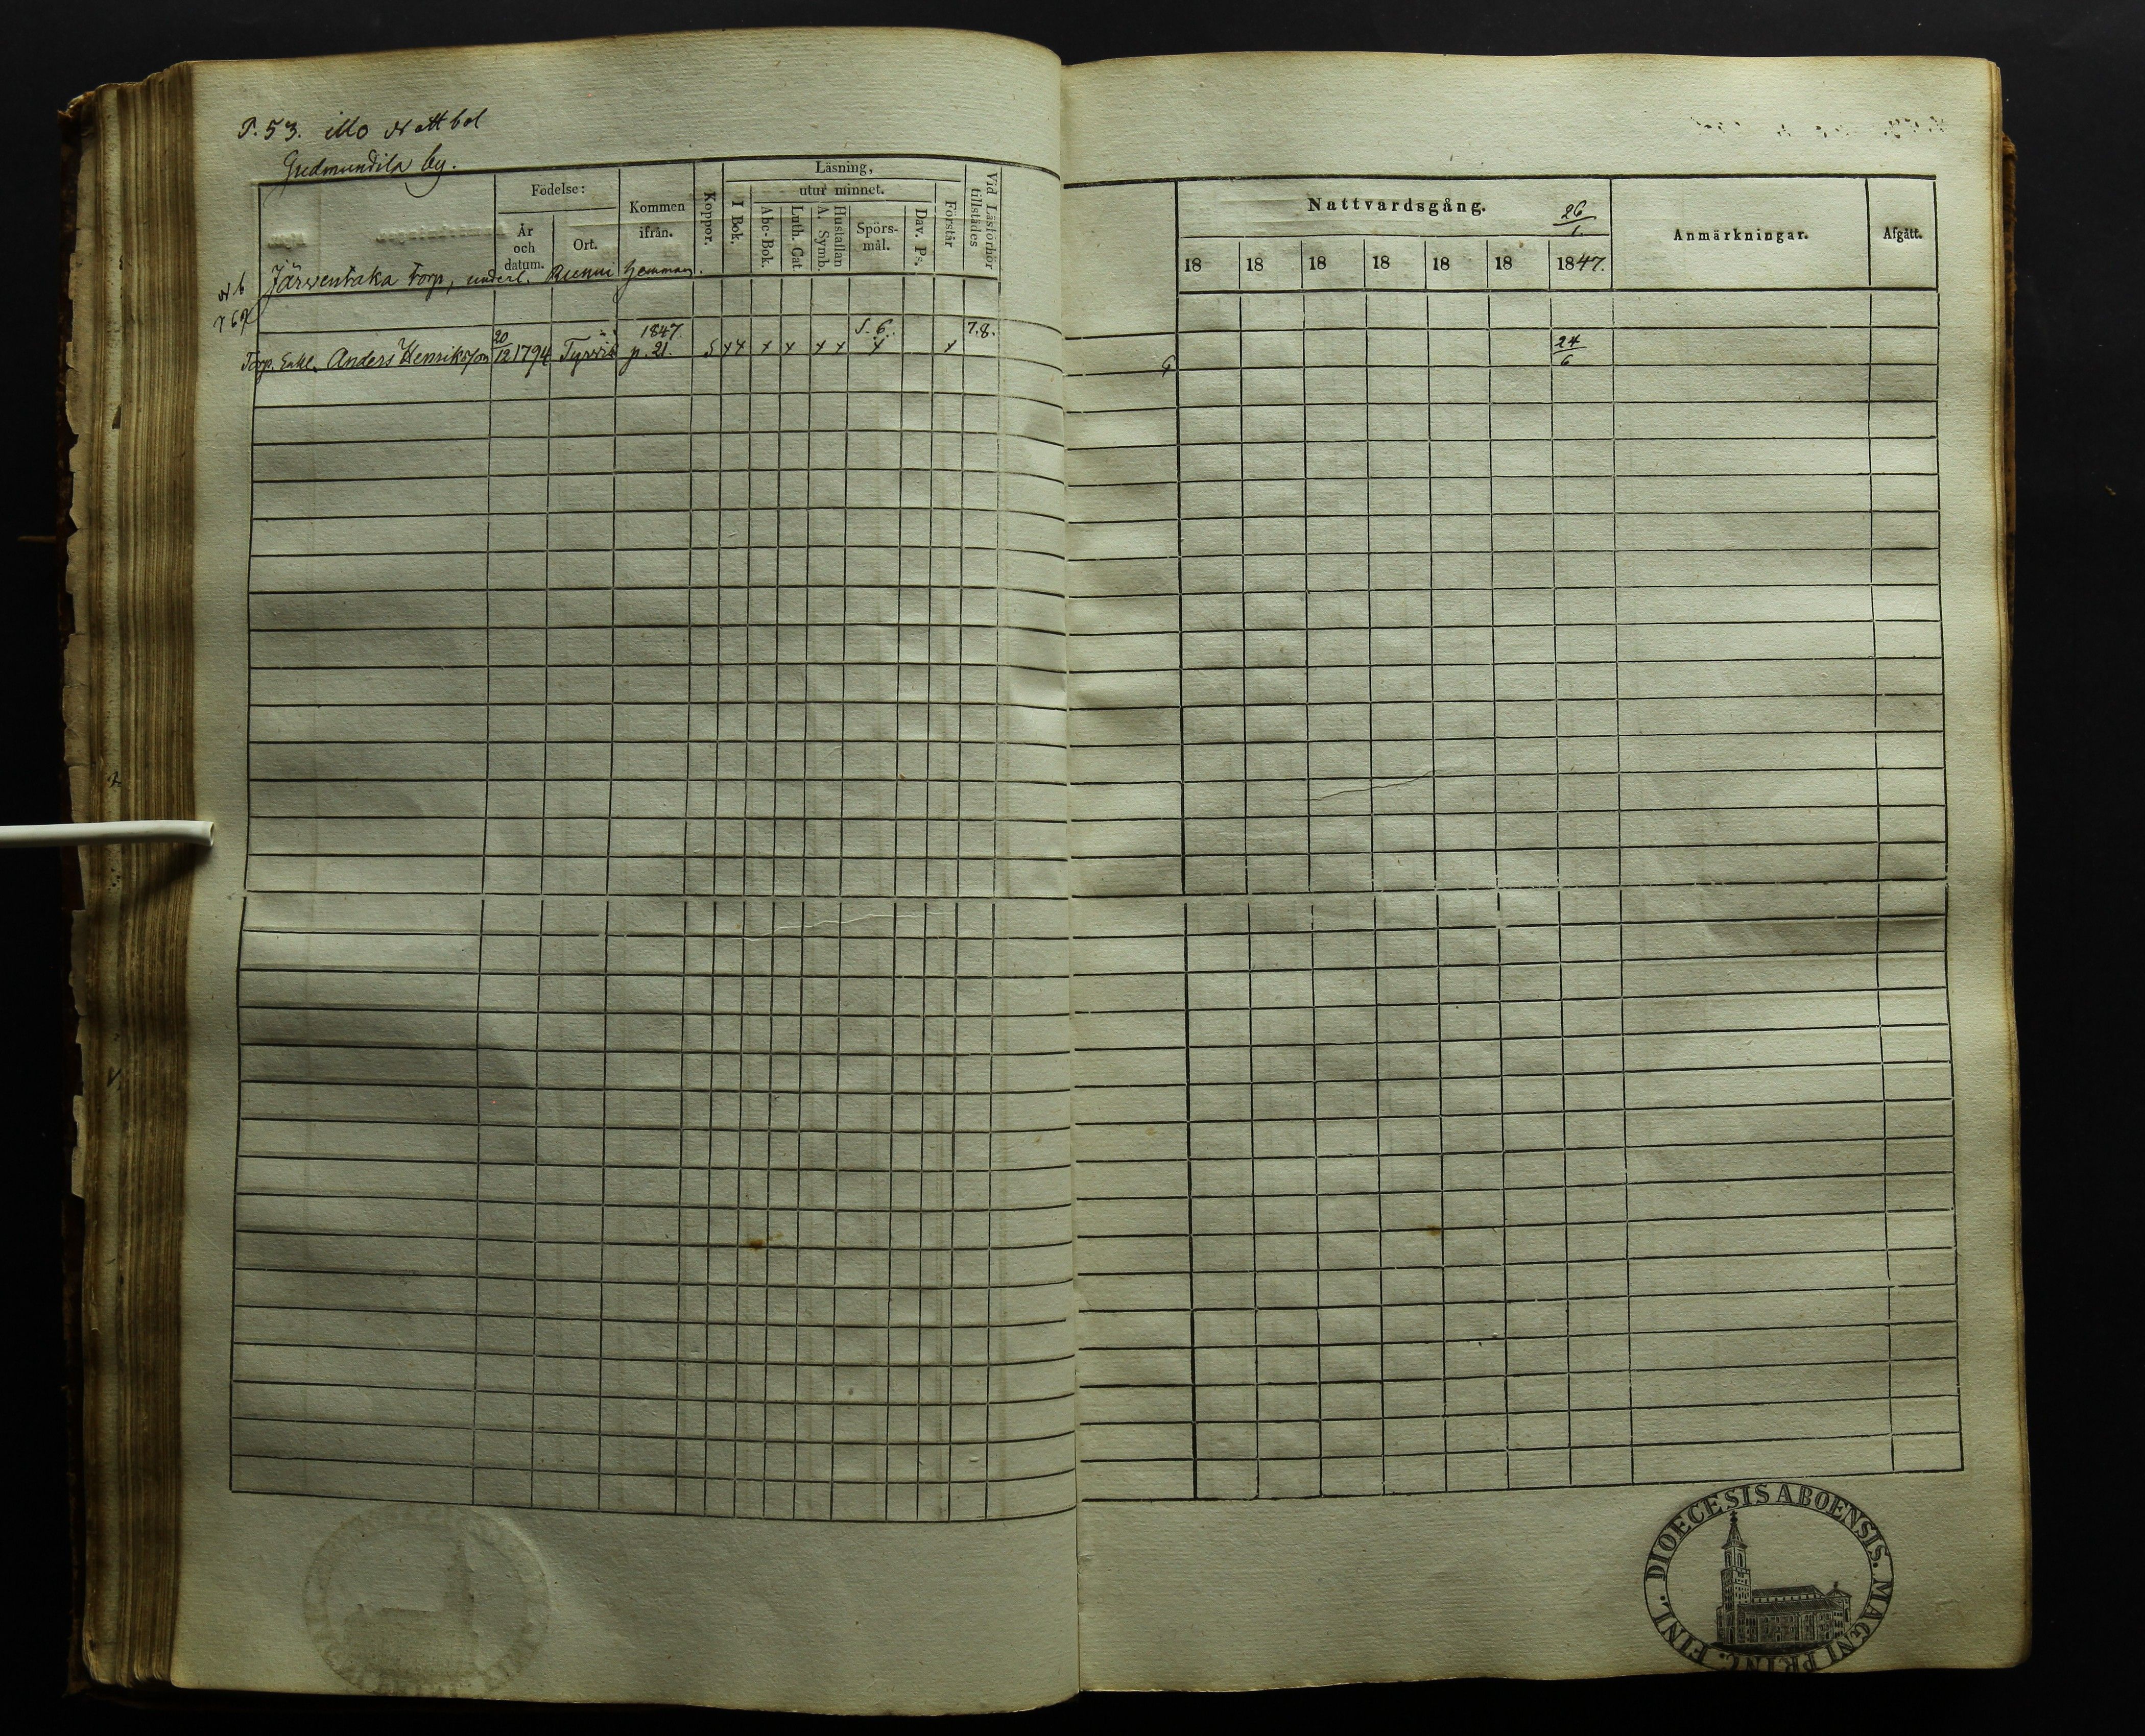 P. 53. illo Nattbol
Gudmundila by.
Födelse:
År och datum.
Ort.
Kommen ifrån.
Koppor.
Läsning,
I Bok.
utur minnet.
Abc-Bok.
Luth. Cat
Hustaflan
A. Symb.
Spörs-mål.
Dav. Ps.
Förstår
Vid Läsförhör tillstädes
Järventaka torp, underl. Runni hemman.
Torp. Enkl. Anders Henriksson 20/12 1794 Tyrvis 1847. p. 21. S x x x x x x S. 6. x x 7.8.
Nattvardsgång.
26/1.
18 18 18 18 18 18 1847.
Anmärkningar.
Afgått.
24/6
DIOECESIS ABOENSIS. MAGNI PRINC. FINL.